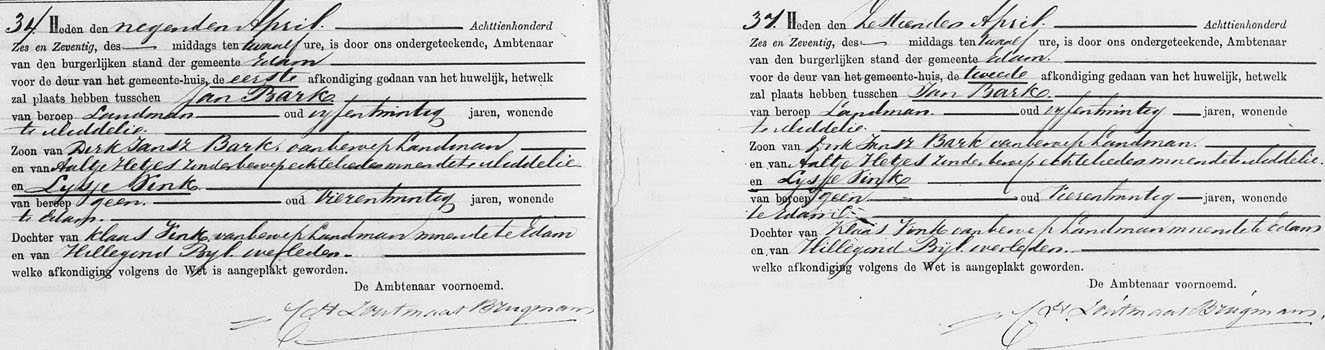 34. Heden den negenden April. Achttienhonderd
Zes en Zeventig, des middags ten twaalf ure, is door ons ondergeteekende, Ambtenaar
van den burgerlijken stand der gemeente Edam
voor de deur van het gemeente-huis, de eerste afkondiging gedaan van het huwelijk, hetwelk
zal plaats hebben tusschen Jan Bark
van beroep Landman oud vyfentwintig jaren, wonende
te Middelie.
Zoon van Dirk Jansz Bark, van beroep Landman
en van Aaltje Hetjes zonder beroep echtelieden wonende te Middelie
en Lysje Vink
van beroep geen oud Vierentwintig jaren, wonende
te Edam.
Dochter van Klaas Vink, van beroep Landman wonende te Edam
en van Hillegond Byl. overleden.
welke afkondiging volgens de Wet is aangeplakt geworden.
De Ambtenaar voornoemd.
Zoutmaat Brugmans
37. Heden den zestienden April. Achttienhonderd
Zes en Zeventig, des middags ten twaalf ure, is door ons ondergeteekende, Ambtenaar
van den burgerlijken stand der gemeente Edam.
voor de deur van het gemeente-huis, de tweede afkondiging gedaan van het huwelijk, hetwelk
zal plaats hebben tusschen Jan Bark.
van beroep Landman. oud vyfentwintig jaren, wonende
te Middelie.
Zoon van Dirk Jansz Bark van beroep Landman.
en van Aaltje Hetjes zonder beroep echtelieden wonende te Middelie
en Lysje Vink
van beroep geen. oud Vierentwintig jaren, wonende
te Edam.
Dochter van Klaas Vink van beroep Landman wonende te Edam
en van Hillegond Byl overleden.
welke afkondiging volgens de Wet is aangeplakt geworden.
De Ambtenaar voornoemd.
Zoutmaat Brugmans.